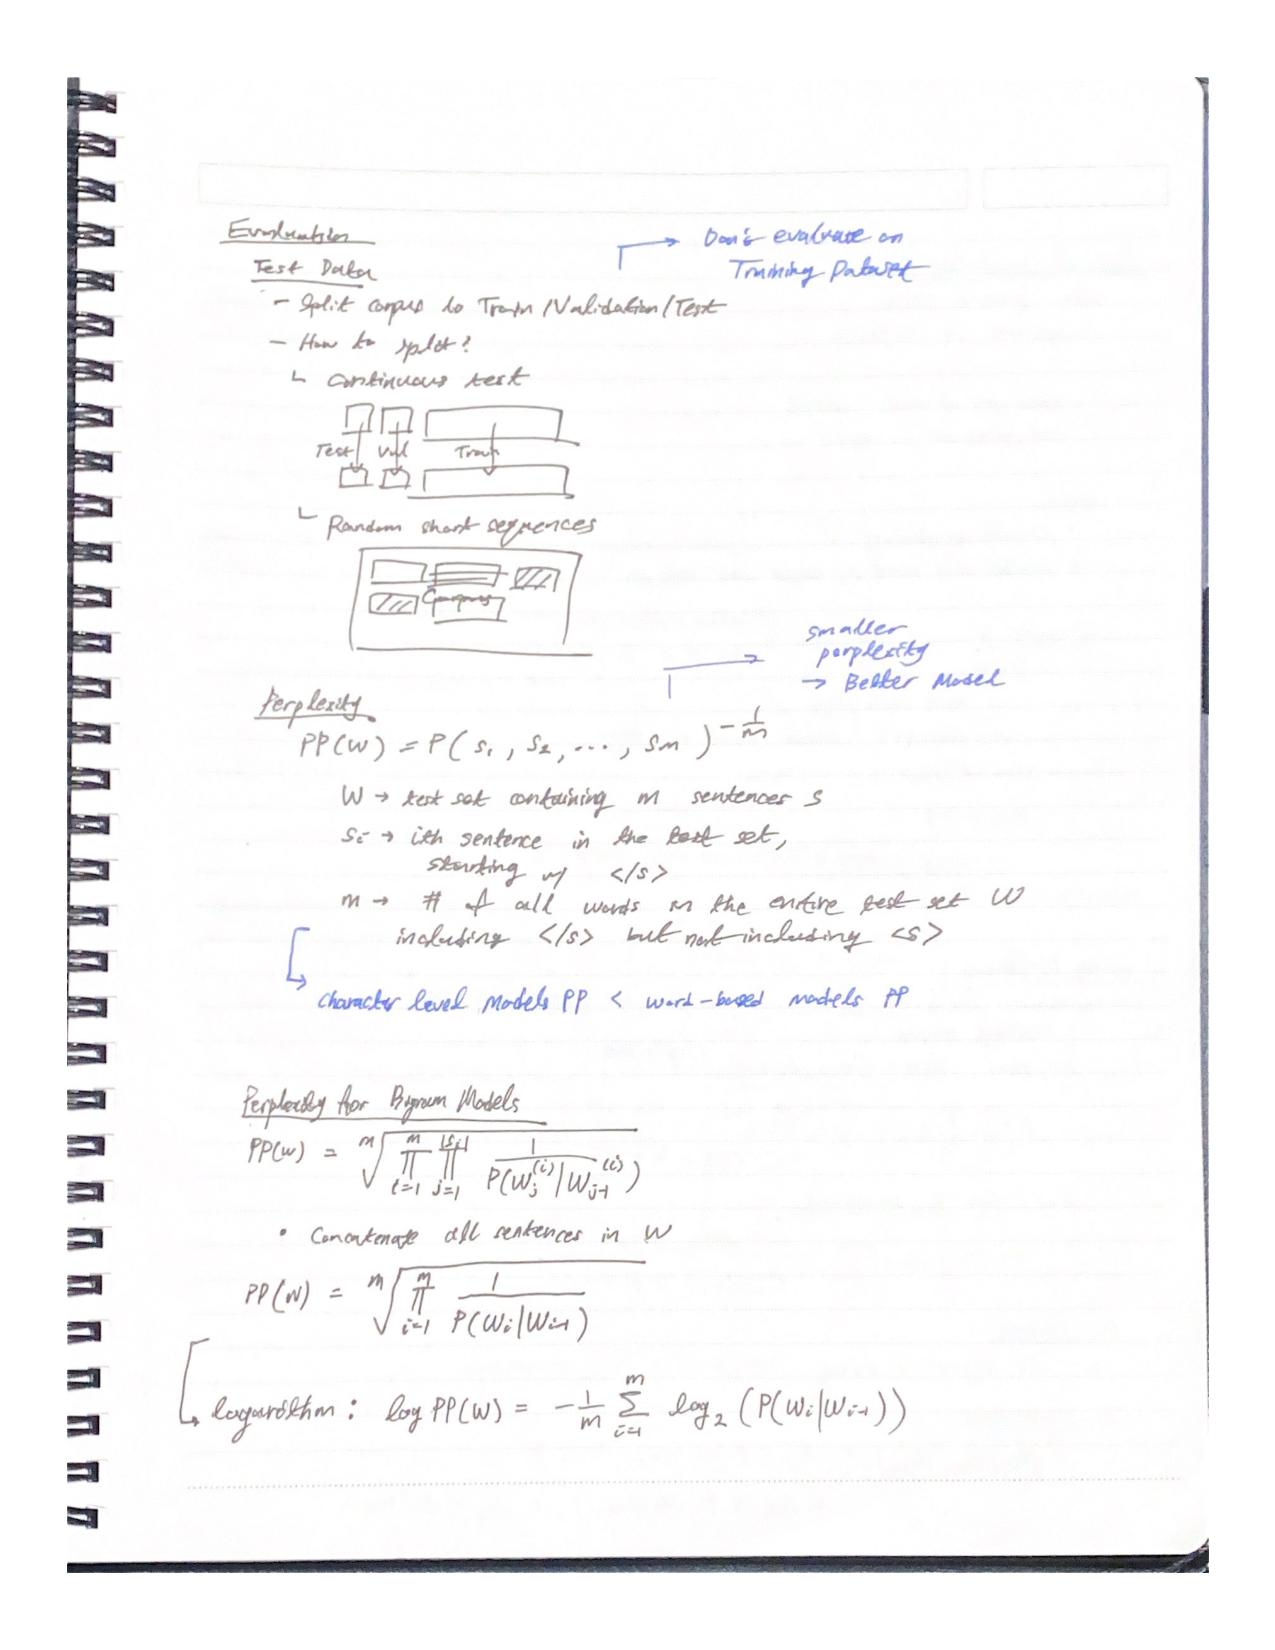 Evaluation
→ Don't evaluate on
Training Dataset
Test Data
- Split corpus to Train/Validation/Test
- How to split?
└ Continuous test
Test Val Train
└ Random short sequences
Corpus
smaller
perplexity
→ Better Model
Perplexity
PP(W) = P(s₁, s₂, ..., sₘ)^(-1/m)
W → test set containing m sentences s
sᵢ → ith sentence in the test set,
starting w/ </s>
m → # of all words in the entire test set W
including </s> but not including <s>
character level models PP < word-based models PP
Perplexity for Bigram Models
PP(W) = ᵐ√(∏_{i=1}^{m} ∏_{j=1}^{|sᵢ|} 1/P(w_j^{(i)}|w_{j-1}^{(i)}))
• Concatenate all sentences in W
PP(W) = ᵐ√(∏_{i=1}^{m} 1/P(wᵢ|w_{i-1}))
logarithm: log PP(W) = -1/m Σ_{i=1}^{m} log₂(P(wᵢ|w_{i-1}))